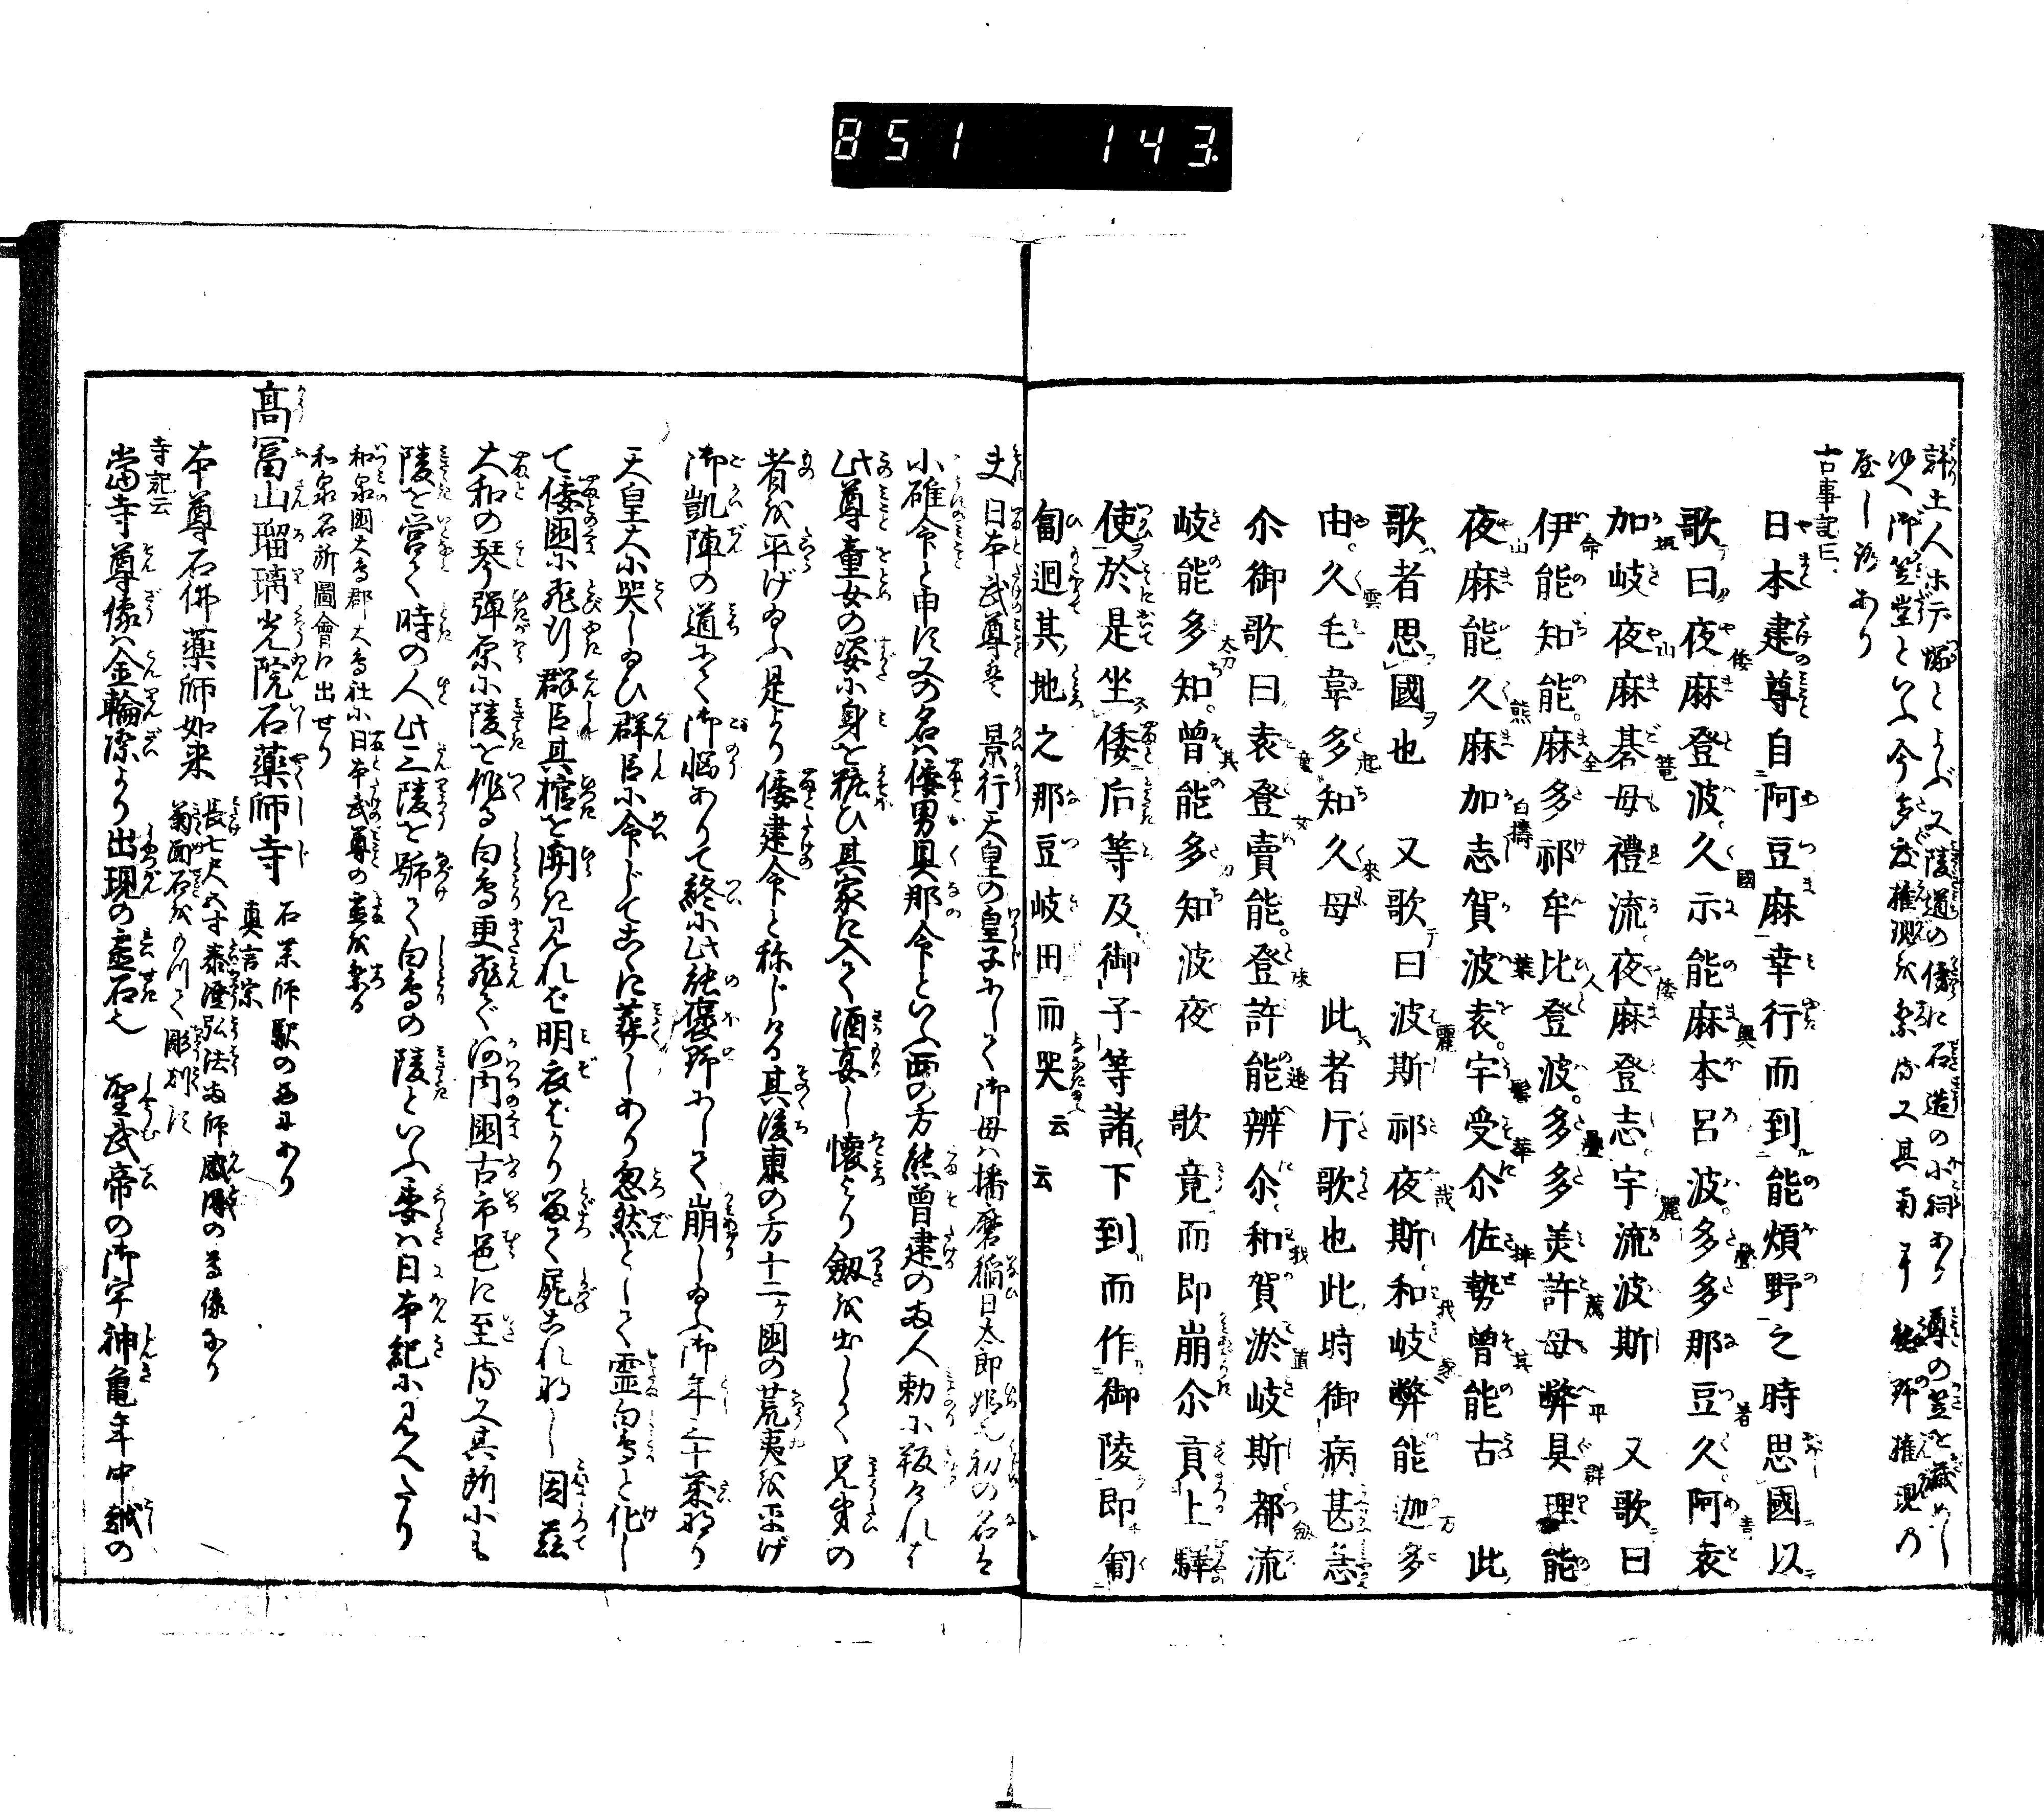 851 143.
許土人ホ行塚とよぶ又陵道の傍に石造の小祠あり尊の笠を蔵めし
ゆへ御笠堂といふ今多度権現を祭る又其南に能野権現の
居し跡あり
古事記曰
日本建尊自阿豆麻幸行而到能煩野之時思國以
歌曰夜麻登波久示能麻本呂波多多那豆久阿袁
加岐夜麻碁母禮流夜麻登志宇流波斯 又歌曰
伊能知能麻多祁牟比登波多多美許母弊具理能
夜麻能久麻加志賀波袁宇受尒佐勢曾能古 此
歌者思國也 又歌曰波斯祁夜斯和岐弊能迦多
由久毛韋多知久母 此者片歌也此時御病甚急
尒御歌曰袁登賣能登許能辨尒和賀淤岐斯都流
岐能多知曾能多知波夜 歌竟而即崩尒貢上驛
使於是坐倭后等及御子等諸下到而作御陵即匍
匐迴其地之那豆岐田而哭云云
夫日本武尊は景行天皇の皇子にして御母は播磨稲日太郎姫也初の名を
小碓命と申す又の名は倭男具那命といふ西の方熊曾建の両人勅に叛きければ
此尊童女の姿に身を粧ひ其家に入て酒宴し懐より劔を出して兄弟の
者を平げ給ふ是より倭建命と称じける其後東の方十二ヶ国の荒夷を平げ
御凱陣の道にて御悩ありて終に此能褒野にして崩じ給ふ御年三十菜なり
天皇大に哭し給ひ群臣に令じてこゝに葬しあり忽然として霊白鳥と化し
て倭國に飛行群臣其棺を開き見れば明衣ばかり留て屍これなし因茲
大和の琴弾原に陵を作る白鳥更飛で河内國古市邑に至る又其所にも
陵を営く時の人此三陵を號て白鳥の陵といふ委は日本紀に見へたり
和泉國大鳥郡大鳥社に日本武尊の霊を祭る
和泉名所圖會に出せり
高冨山瑠璃光院石薬師寺 石薬師駅の西にあり
真言宗
本尊石佛藥師如来 長七尺五寸泰澄弘法両師感得の尊像なり
菊面石をのつて彫刻す
寺記云
當寺尊像は金輪際より出現の霊石也 聖武帝の御宇神亀年中越の